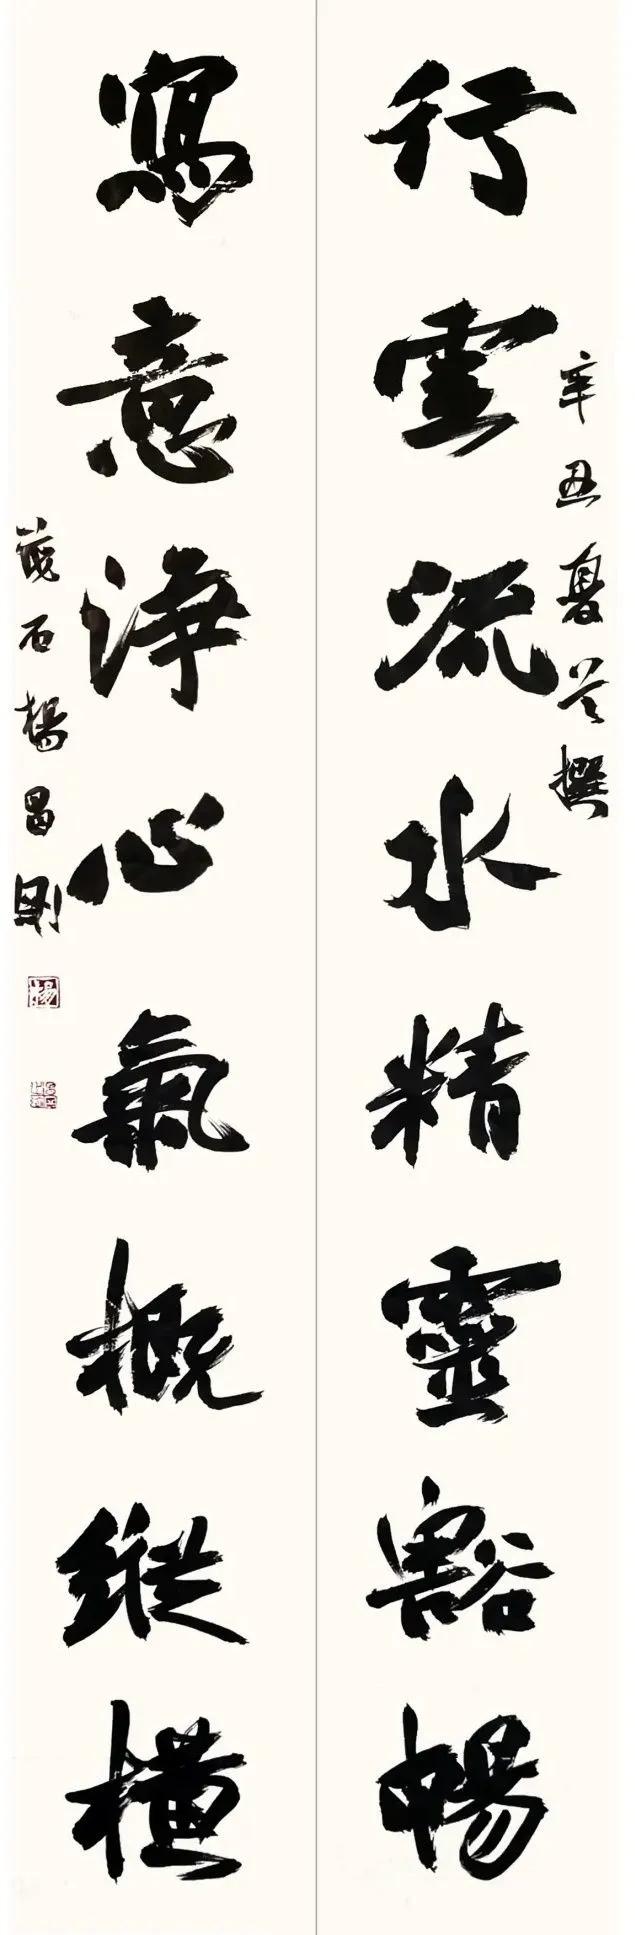 行雲流水精靈豁暢
辛丑夏 撰
寫意淨心氣概縱橫
石楊昌剛
楊